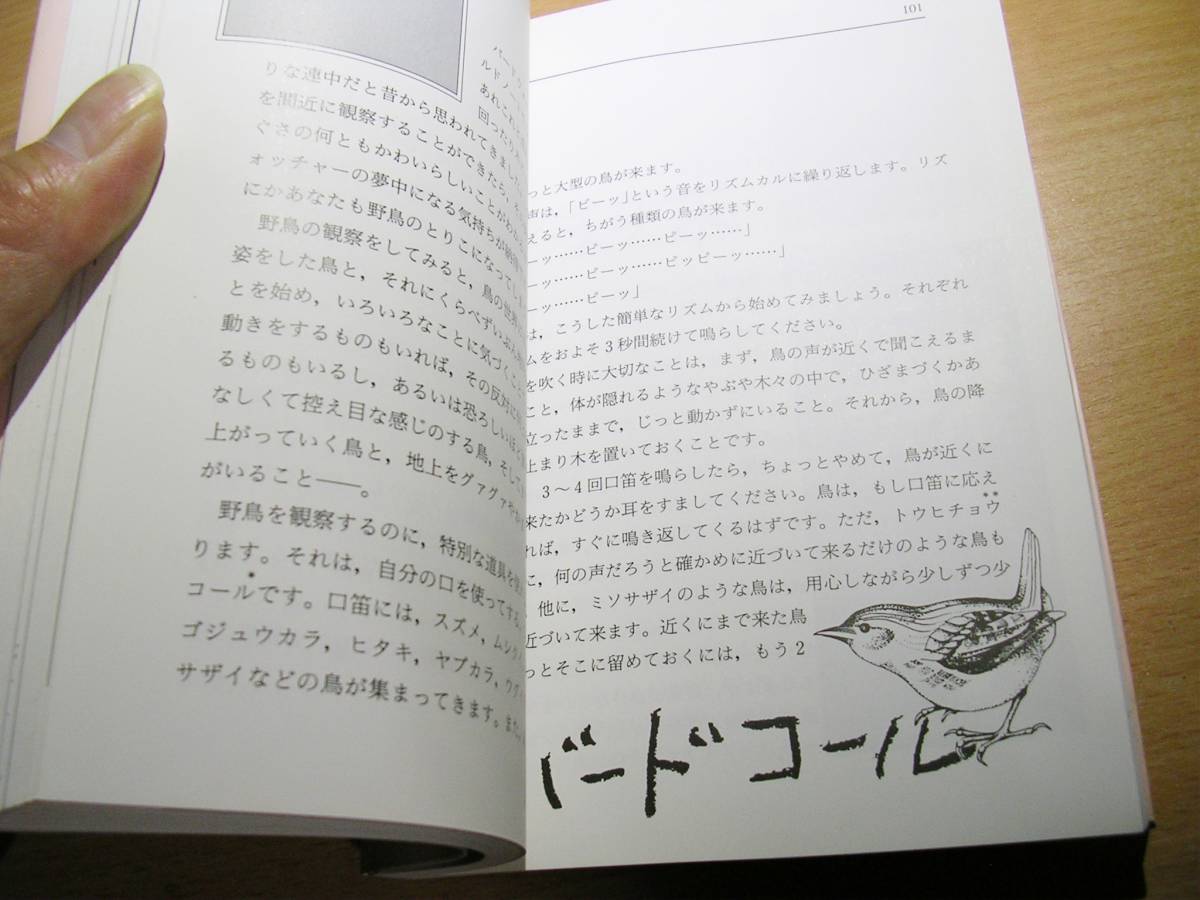 バード
ルドノ
あれこれと
回ったり
りな連中だと昔から思われてきました
を間近に観察することができたら、そ
ぐさの何ともかわいらしいことがわか
ォッチャーの夢中になる気持ちが
にかあなたも野鳥のとりこになってしま
野鳥の観察をしてみると，鳥の世界
姿をした鳥と，それにくらべずいぶん
とを始め，いろいろなことに気づくこと
動きをするものもいれば，その反対に
るものもいるし，あるいは恐ろしいほど
なしくて控え目な感じのする鳥，そして
上がっていく鳥と，地上をグァグァや
がいること――。
野鳥を観察するのに，特別な道具を
ります。それは，自分の口を使ってする
コールです。口笛には，スズメ，ムシク
ゴジュウカラ，ヒタキ，ヤブカラ，ウグイ
サザイなどの鳥が集まってきます。また
101
っと大型の鳥が来ます。
声は，「ビーッ」という音をリズムカルに繰り返します。リズ
えると，ちがう種類の鳥が来ます。
ーッ……ビーッ……ビーッ……」
ーッ……ビーッ……ビッビーッ……」
ーッ……ビーッ」
は，こうした簡単なリズムから始めてみましょう。それぞれ
ムをおよそ3秒間続けて鳴らしてください。
を吹く時に大切なことは，まず，鳥の声が近くで聞こえるま
こと，体が隠れるようなやぶや木々の中で，ひざまづくかあ
立ったままで，じっと動かずにいること。それから，鳥の降
止まり木を置いておくことです。
3〜4回口笛を鳴らしたら，ちょっとやめて，鳥が近くに
来たかどうか耳をすましてください。鳥は，もし口笛に応え
れば，すぐに鳴き返してくるはずです。ただ，トウヒチョウ
に，何の声だろうと確かめに近づいて来るだけのような鳥も
他に，ミソサザイのような鳥は，用心しながら少しずつ少
近づいて来ます。近くにまで来た鳥
っとそこに留めておくには，もう2
バードコール